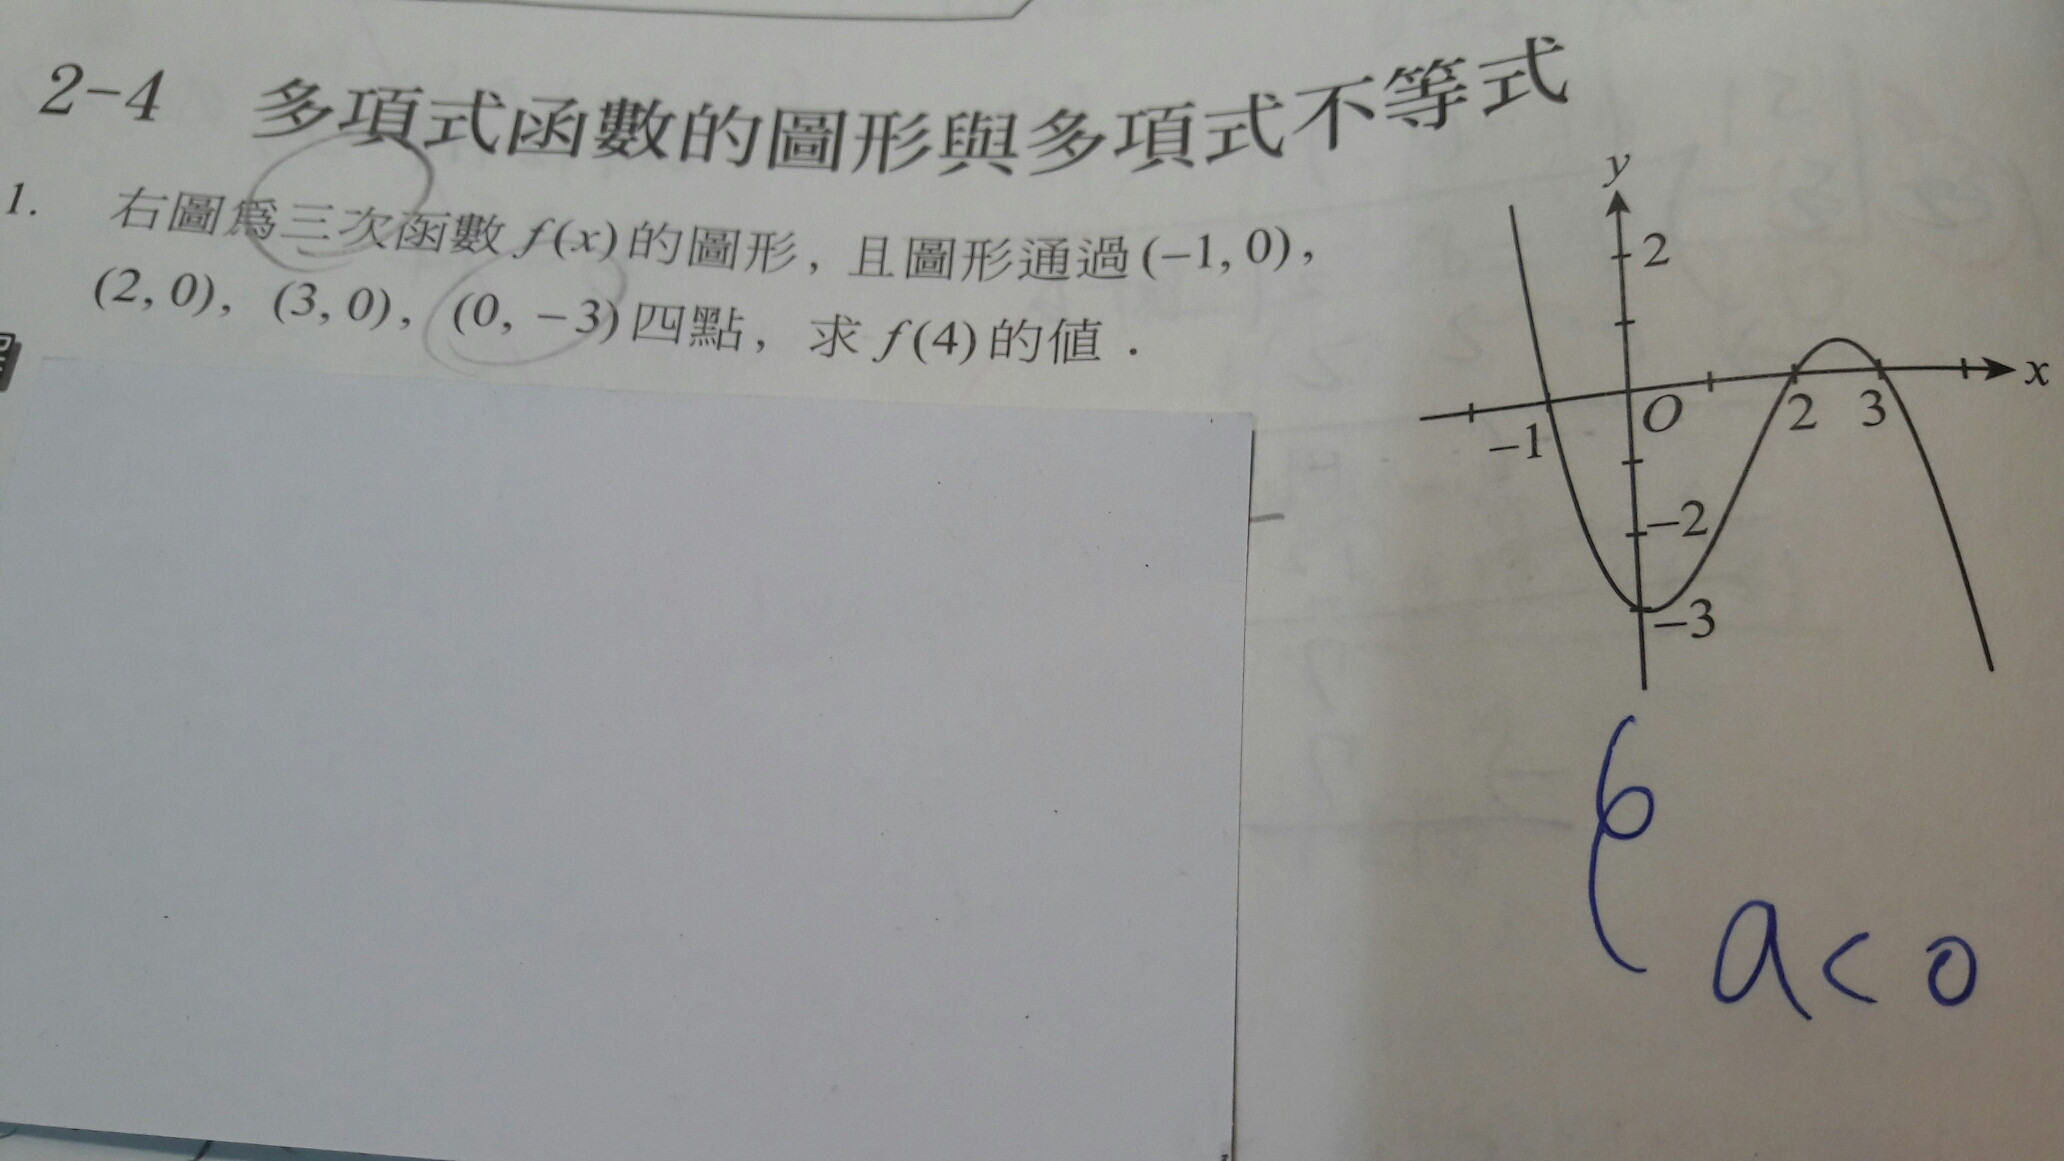 2-4 多項式函數的圖形與多項式不等式
1. 右圖為三次函數 f(x) 的圖形，且圖形通過 (−1, 0)，
(2, 0)，(3, 0)，(0, −3) 四點，求 f(4) 的值．
y
2
x
−1
O
2
3
−2
−3
a < 0